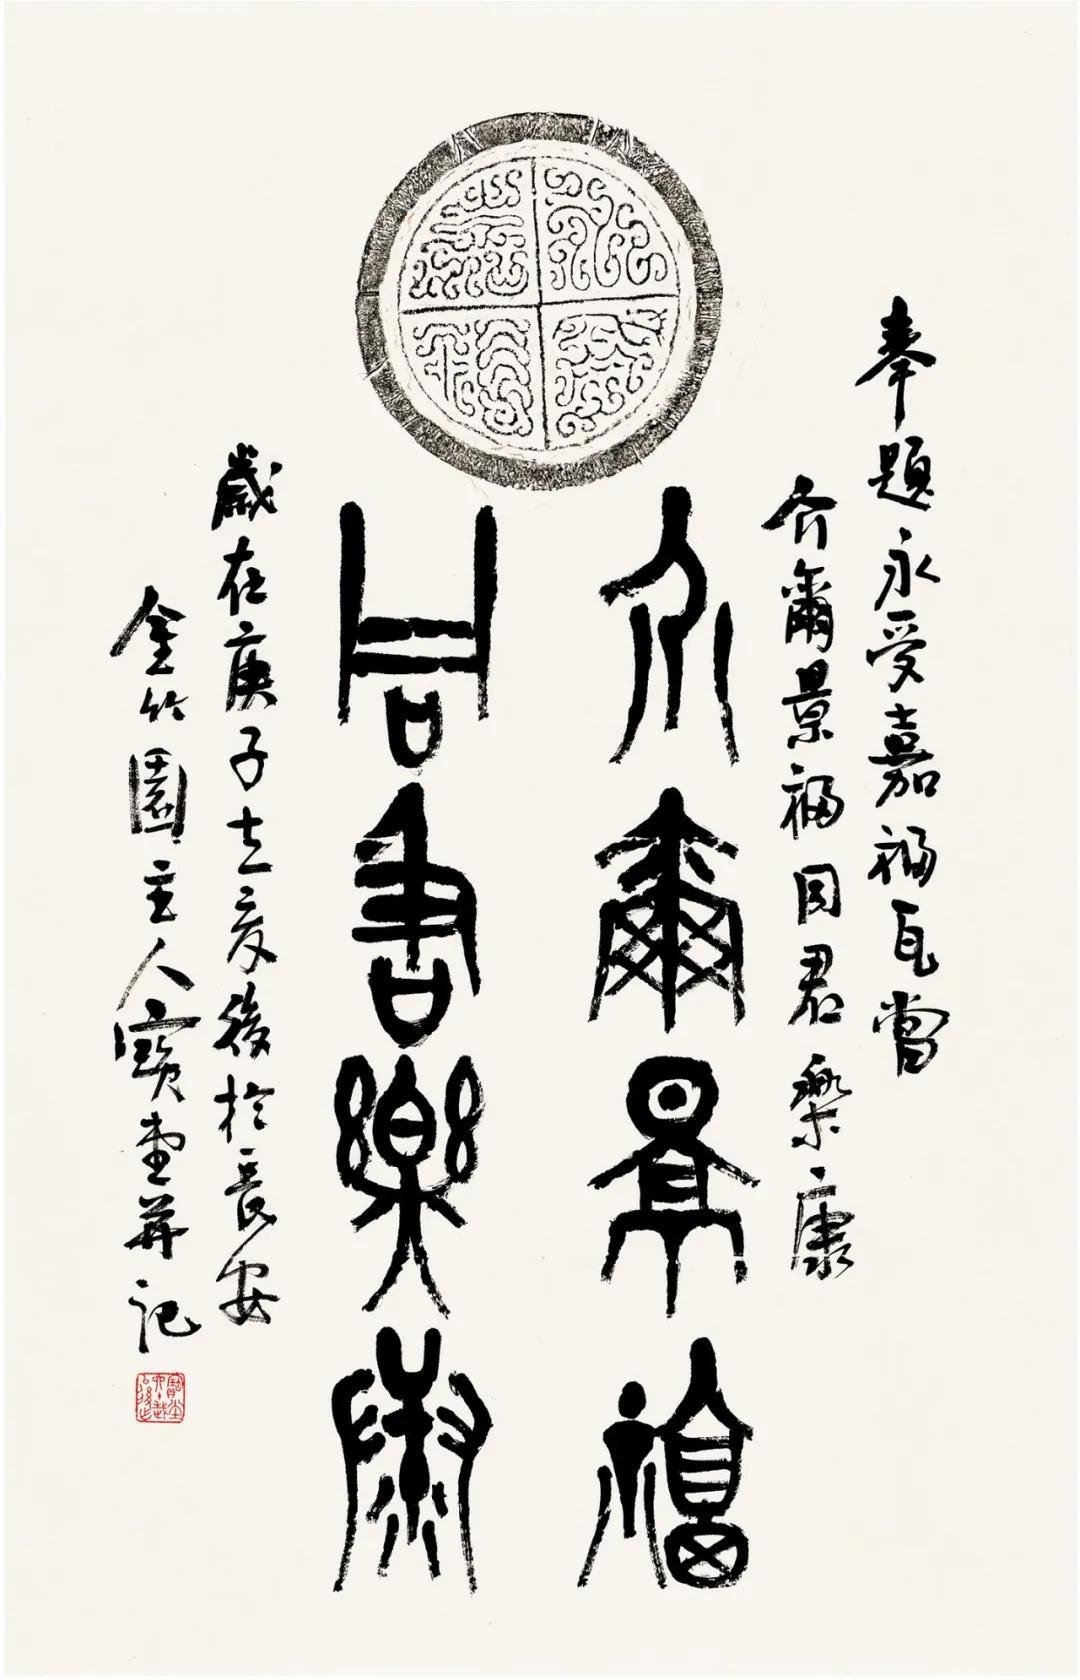 永受嘉福
介爾景福
同君樂康
奉題永受嘉福瓦當
介爾景福同君樂康
歲在庚子立夏後於長安
金竹園主人寶堂并記